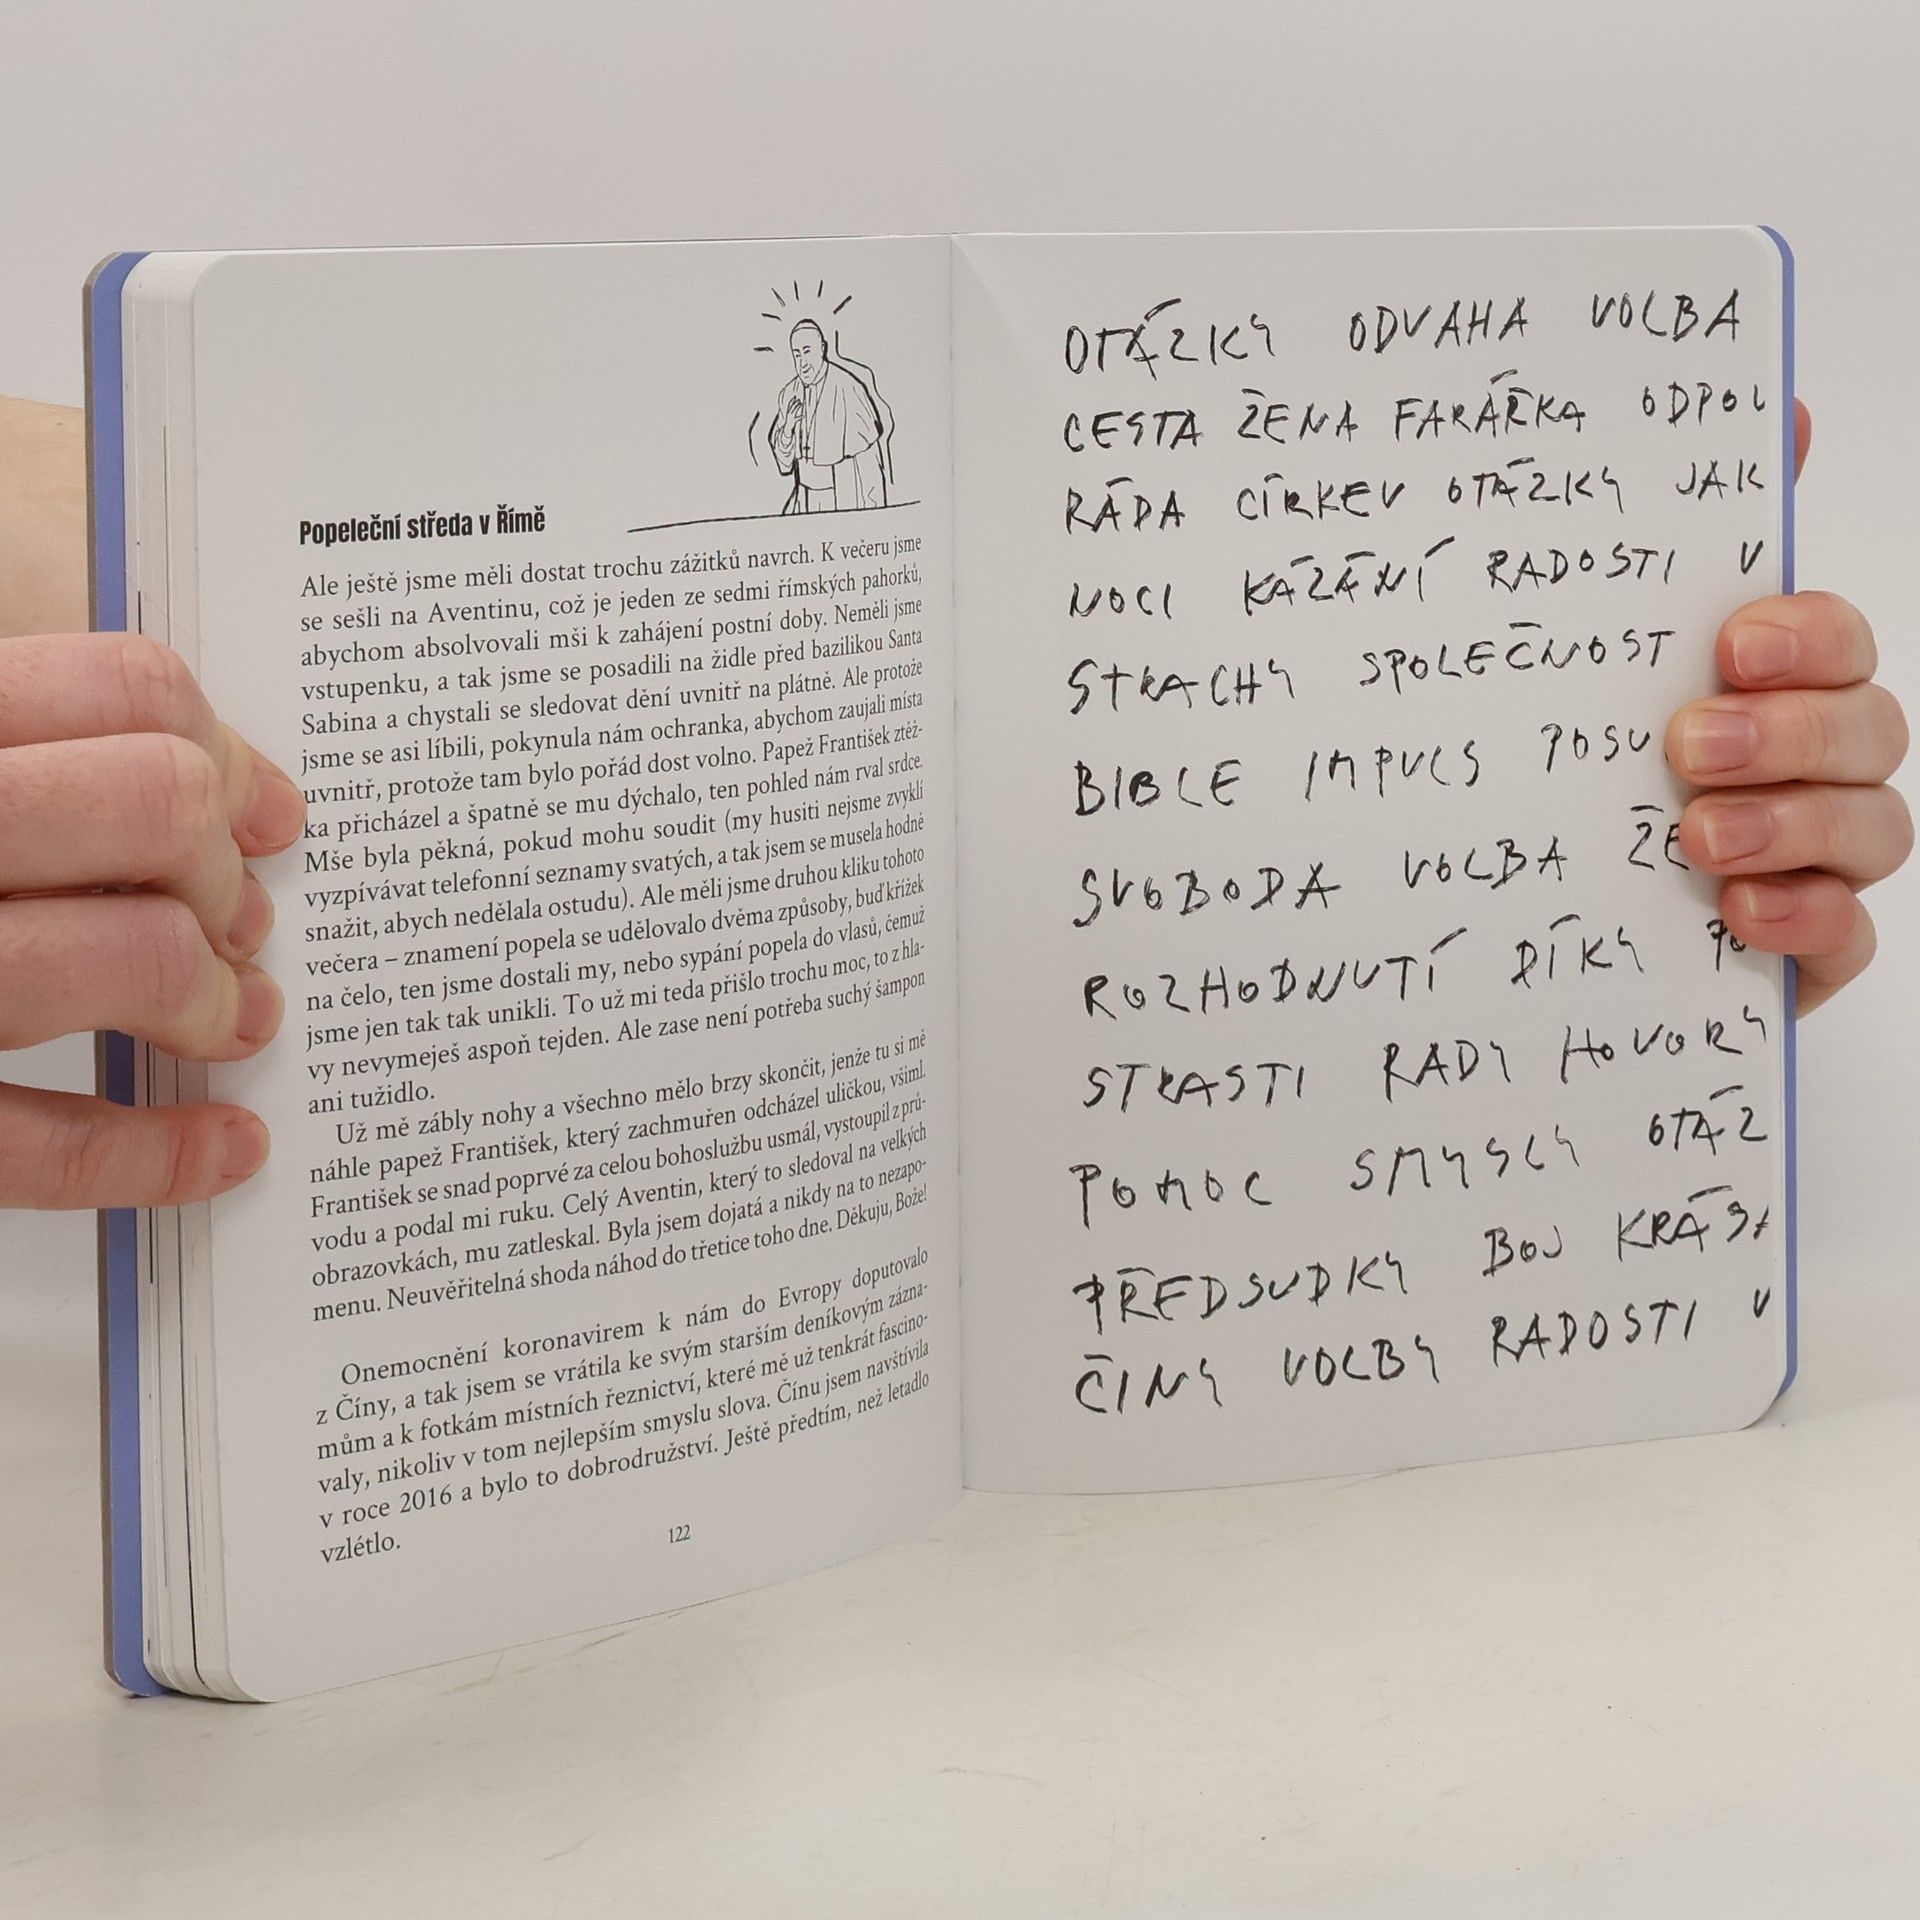 Popeleční středa v Římě
Ale ještě jsme měli dostat trochu zážitků navrch. K večeru jsme
se sešli na Aventinu, což je jeden ze sedmi římských pahorků,
abychom absolvovali mši k zahájení postní doby. Neměli jsme
vstupenku, a tak jsme se posadili na židle před bazilikou Santa
Sabina a chystali se sledovat dění uvnitř na plátně. Ale protože
jsme se asi líbili, pokynula nám ochranka, abychom zaujali místa
uvnitř, protože tam bylo pořád dost volno. Papež František ztěž-
ka přicházel a špatně se mu dýchalo, ten pohled nám rval srdce.
Mše byla pěkná, pokud mohu soudit (my husiti nejsme zvyklí
vyzpívávat telefonní seznamy svatých, a tak jsem se musela hodně
snažit, abych nedělala ostudu). Ale měli jsme druhou kliku tohoto
večera – znamení popela se udělovalo dvěma způsoby, buď křížek
na čelo, ten jsme dostali my, nebo sypání popela do vlasů, čemuž
jsme jen tak tak unikli. To už mi teda přišlo trochu moc, to z hla-
vy nevymeješ aspoň tejden. Ale zase není potřeba suchý šampon
ani tužidlo.
Už mě zábly nohy a všechno mělo brzy skončit, jenže tu si mě
náhle papež František, který zachmuřen odcházel uličkou, všiml.
František se snad poprvé za celou bohoslužbu usmál, vystoupil z prů-
vodu a podal mi ruku. Celý Aventin, který to sledoval na velkých
obrazovkách, mu zatleskal. Byla jsem dojatá a nikdy na to nezapo-
menu. Neuvěřitelná shoda náhod do třetice toho dne. Děkuju, Bože!
Onemocnění koronavirem k nám do Evropy doputovalo
z Číny, a tak jsem se vrátila ke svým starším deníkovým zázna-
mům a k fotkám místních řeznictví, které mě už tenkrát fascino-
valy, nikoliv v tom nejlepším smyslu slova. Čínu jsem navštívila
v roce 2016 a bylo to dobrodružství. Ještě předtím, než letadlo
vzlétlo.
122
OTÁZKY ODVAHA VOLBA
CESTA ŽENA FARÁŘKA ODPOU
RÁDA CÍRKEV OTÁZKY JAK
NOCI KÁZÁNÍ RADOSTI V
STRACHY SPOLEČNOST
BIBLE IMPULS POSU
SVOBODA VOLBA ŽE
ROZHODNUTÍ DÍKY PO
STRASTI RADY HOVORY
POMOC SMYSLY OTÁZ
PŘEDSUDKY BOJ KRÁS
ČINY VOLBY RADOSTI V